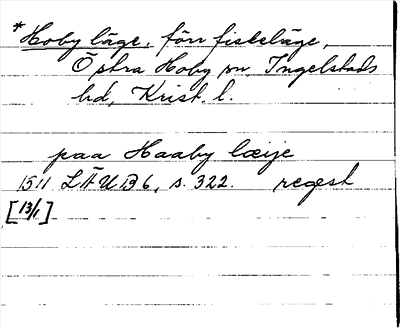 *Hoby läge, förr fiskeläge,
Östra Hoby sn, Ingelstads
hd, Krist. l.
paa Haaby læije
1511 LAUB 6, s. 322. regest
[13/1]